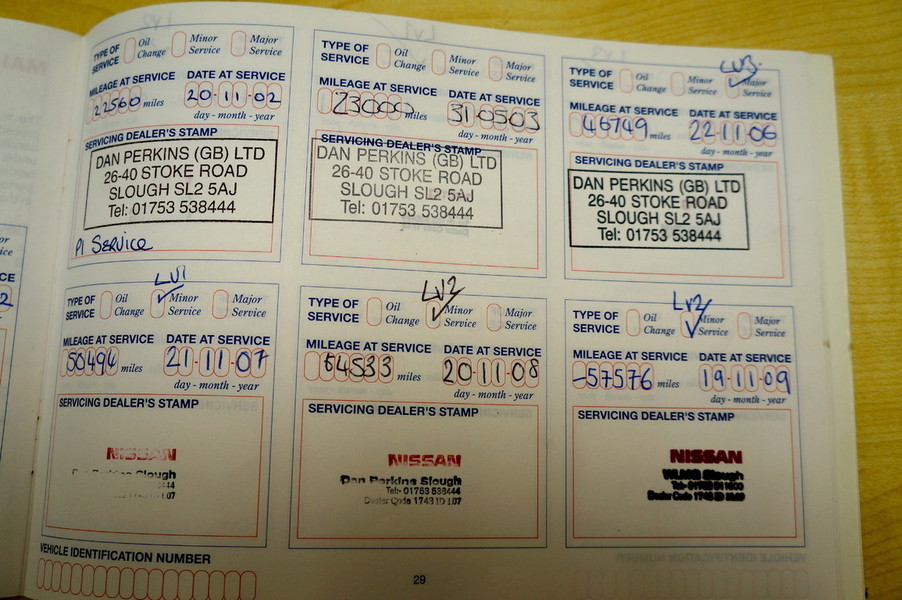 TYPE OF SERVICE Oil Change Minor Service Major Service
MILEAGE AT SERVICE DATE AT SERVICE
22560 miles 20-11-02
day - month - year
SERVICING DEALER'S STAMP
DAN PERKINS (GB) LTD
26-40 STOKE ROAD
SLOUGH SL2 5AJ
Tel: 01753 538444
PI Service
TYPE OF SERVICE Oil Change Minor Service Major Service
MILEAGE AT SERVICE DATE AT SERVICE
23000 miles 31-0503
day - month - year
SERVICING DEALER'S STAMP
DAN PERKINS (GB) LTD
26-40 STOKE ROAD
SLOUGH SL2 5AJ
Tel: 01753 538444
LV3
TYPE OF SERVICE Oil Change Minor Service Major Service
MILEAGE AT SERVICE DATE AT SERVICE
46749 miles 22-11-06
day - month - year
SERVICING DEALER'S STAMP
DAN PERKINS (GB) LTD
26-40 STOKE ROAD
SLOUGH SL2 5AJ
Tel: 01753 538444
LV1
TYPE OF SERVICE Oil Change Minor Service Major Service
MILEAGE AT SERVICE DATE AT SERVICE
50494 miles 21-11-07
day - month - year
SERVICING DEALER'S STAMP
NISSAN
Dan Perkins Slough
LV2
TYPE OF SERVICE Oil Change Minor Service Major Service
MILEAGE AT SERVICE DATE AT SERVICE
54533 miles 20-11-08
day - month - year
SERVICING DEALER'S STAMP
NISSAN
Dan Perkins Slough
Tel:- 01753 538444
Dealer Code 1743
LV2
TYPE OF SERVICE Oil Change Minor Service Major Service
MILEAGE AT SERVICE DATE AT SERVICE
-57576 miles 19-11-09
day - month - year
SERVICING DEALER'S STAMP
NISSAN
Slough
Dealer Code 1743
VEHICLE IDENTIFICATION NUMBER
29